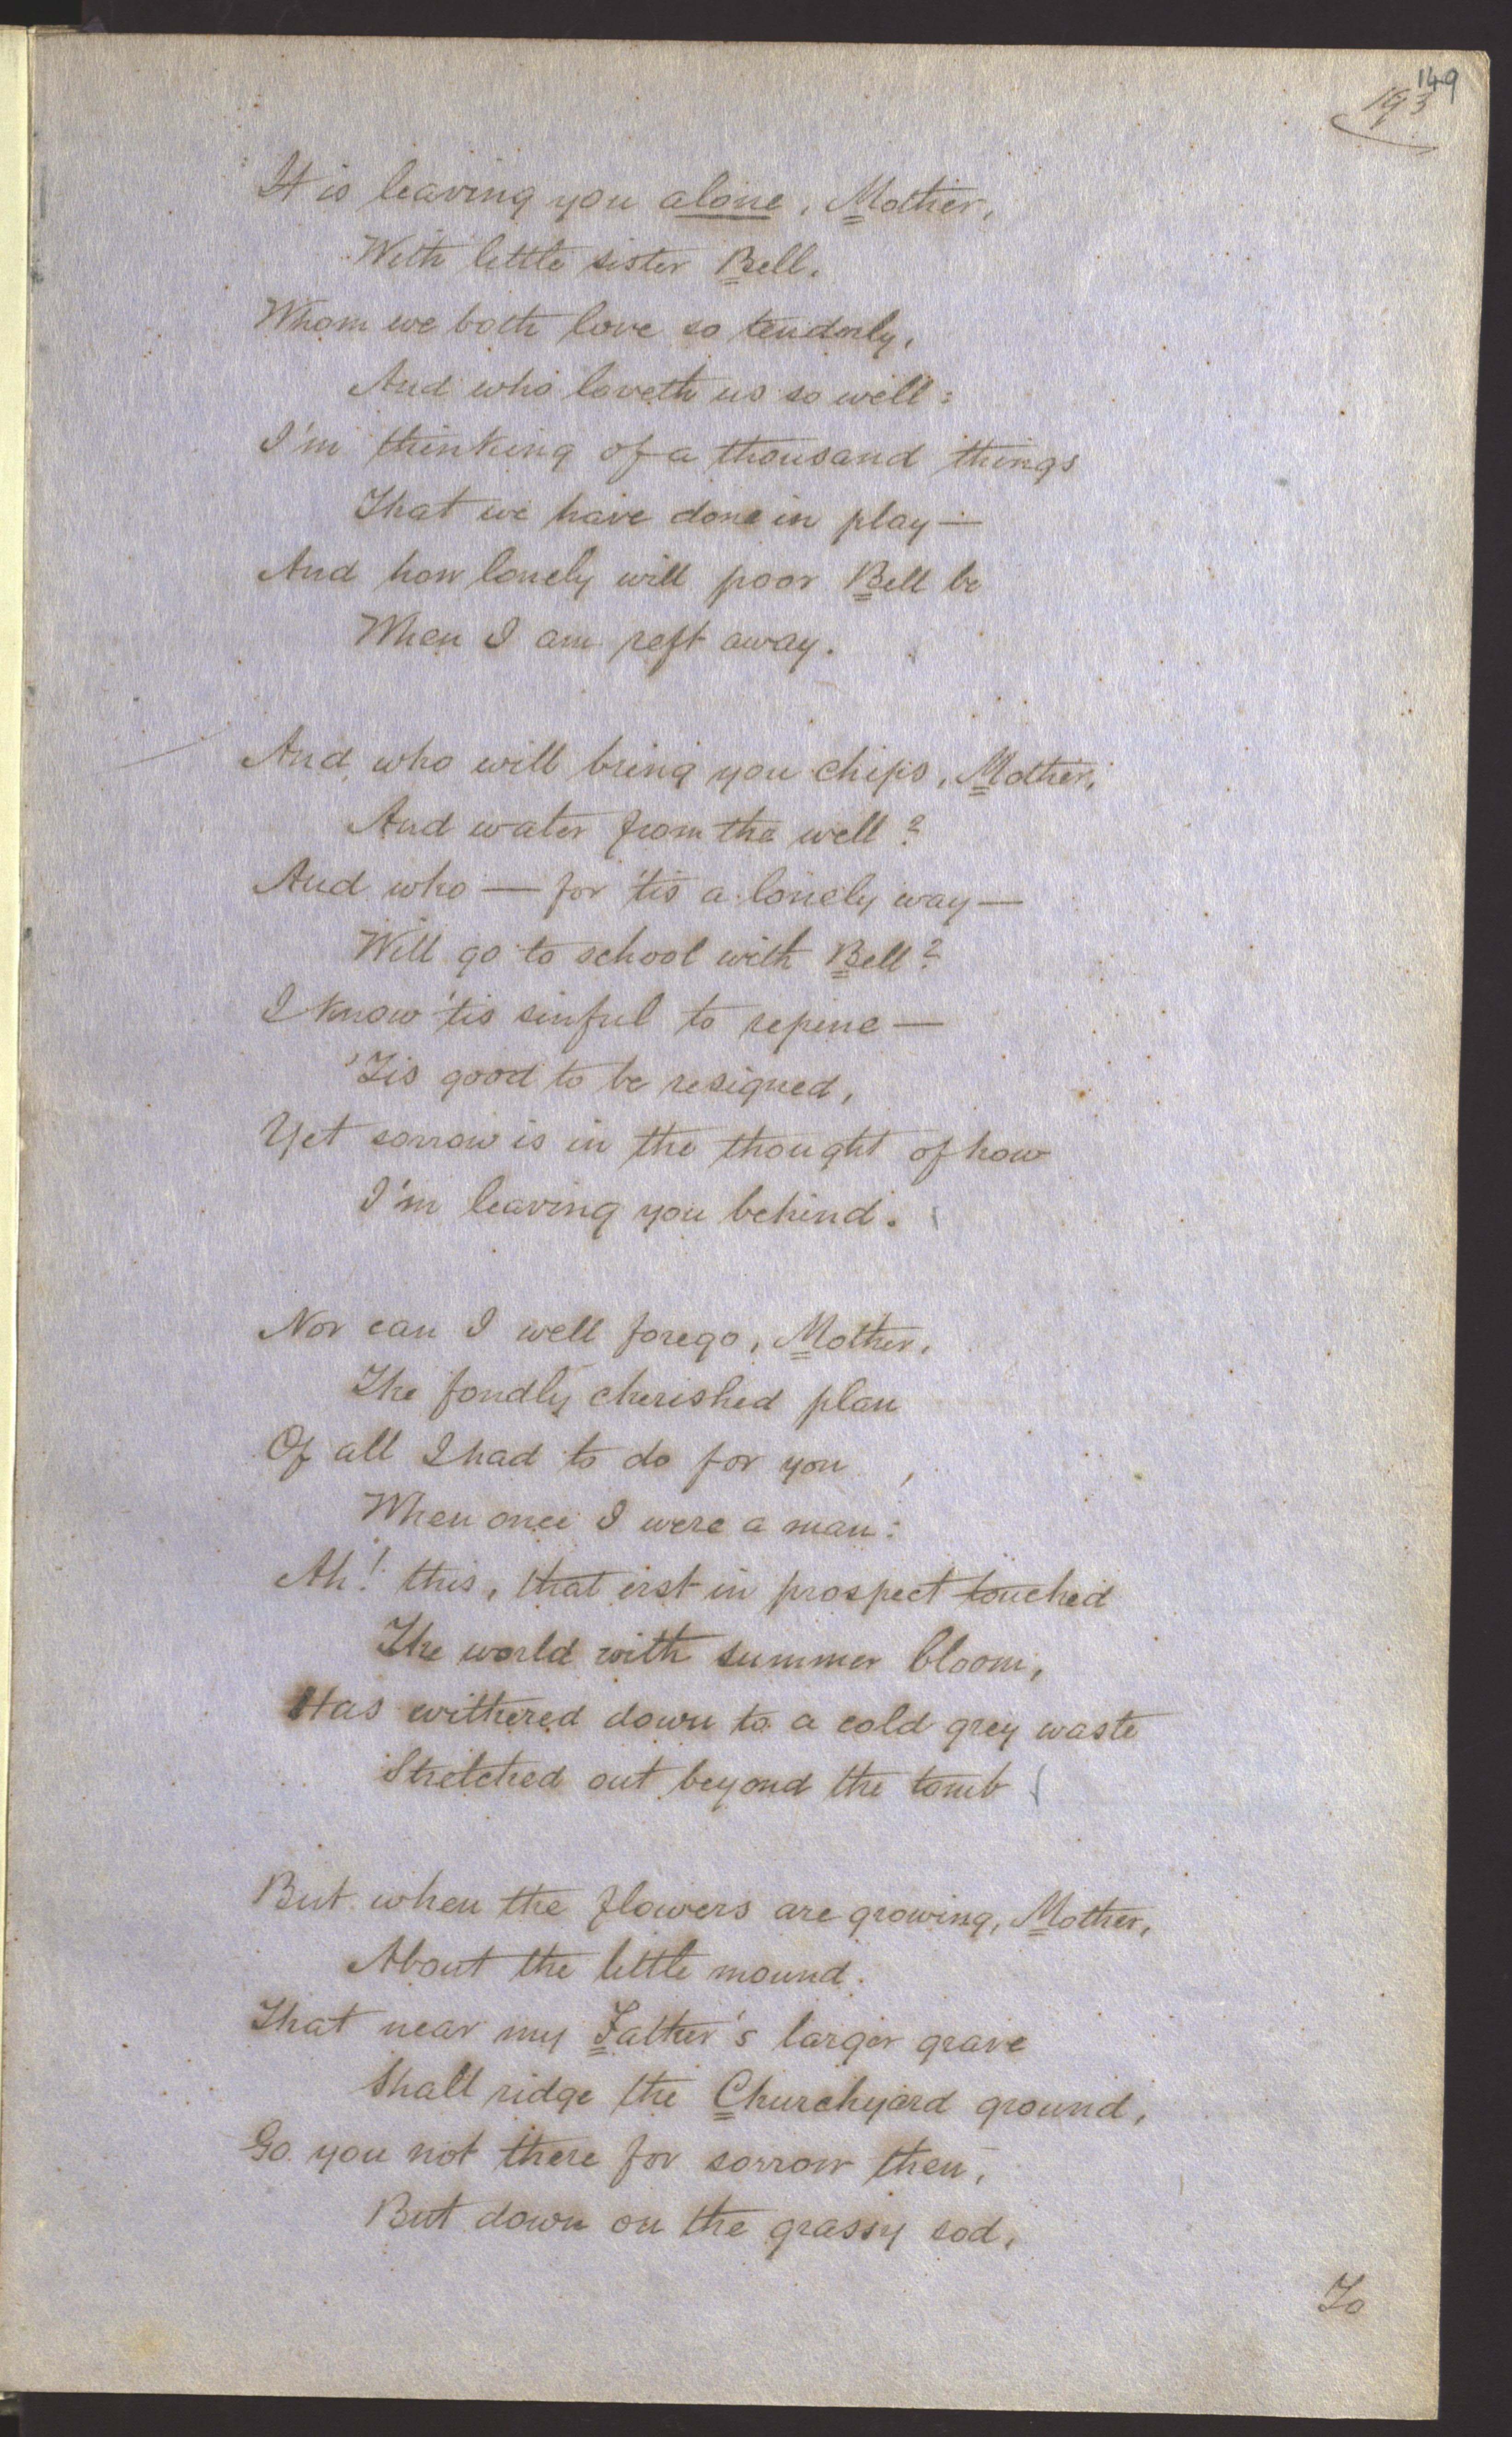 149
193
It is leaving you alone, Mother,
With little sister Bell,
Whom we both love so tenderly,
And who loveth us so well:
I'm thinking of a thousand things
That we have done in play—
And how lonely will poor Bell be
When I am reft away.
And who will bring you chips, Mother,
And water from the well?
And who — for 'tis a lonely way—
Will go to school with Bell?
I know 'tis sinful to repine—
'Tis good to be resigned,
Yet sorrow is in the thought of how
I'm leaving you behind.
Nor can I well forego, Mother,
The fondly cherished plan
Of all I had to do for you,
When once I were a man:
Ah! this, that erst in prospect touched
The world with summer bloom,
Has withered down to a cold grey waste
Stretched out beyond the tomb
But when the flowers are growing, Mother,
About the little mound.
That near my Father's larger grave
Shall ridge the Churchyard ground,
Go you not there for sorrow then,
But down on the grassy sod,
To